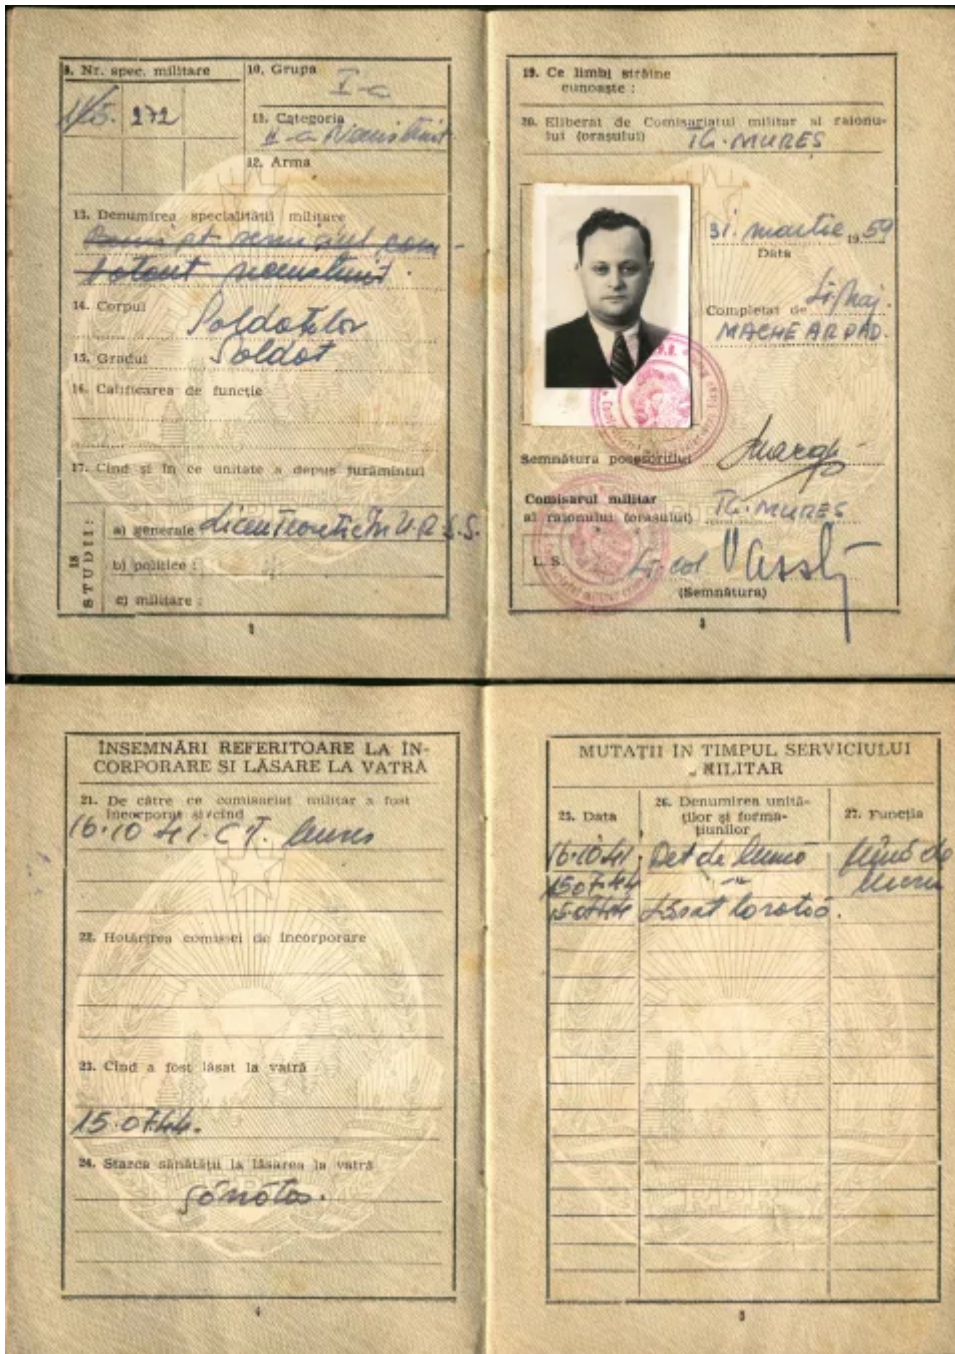 9. Nr. spec. militare
10. Grupa
I-a
115. 272
11. Categoria
II-a
12. Arma
13. Denumirea specialității militare
14. Corpul
Soldaților
15. Gradul
Soldat
16. Calificarea de funcție
17. Cînd și în ce unitate a depus jurămîntul
18 STUDII:
a) generale
U.R.S.S.
b) politice :
c) militare :
2
19. Ce limbi străine
cunoaște :
20. Eliberat de Comisariatul militar al raionu-
lui (orașului) TG. MUREȘ
31. martie 1959
Data
Completat de Lt. Maj.
MACHE ARPAD.
Semnătura posesorului
Comisarul militar
al raionului (orașului) TG. MUREȘ
L. S.
Lt. col
(Semnătura)
3
ÎNSEMNĂRI REFERITOARE LA ÎN-
CORPORARE ȘI LĂSARE LA VATRĂ
21. De către ce comisariat militar a fost
încorporat și cînd
16.10 41. C.T. Mureș
22. Hotărîrea comisiei de încorporare
23. Cînd a fost lăsat la vatră
15.07.44.
24. Starea sănătății la lăsarea la vatră
sănătos.
4
MUTAȚII ÎN TIMPUL SERVICIULUI
MILITAR
25. Data
26. Denumirea unită-
ților și forma-
țiunilor
27. Funcția
16.10.41. Det de muncă mînă de
15.07.44 lucru
15.07.44 Lăsat la vatră.
5